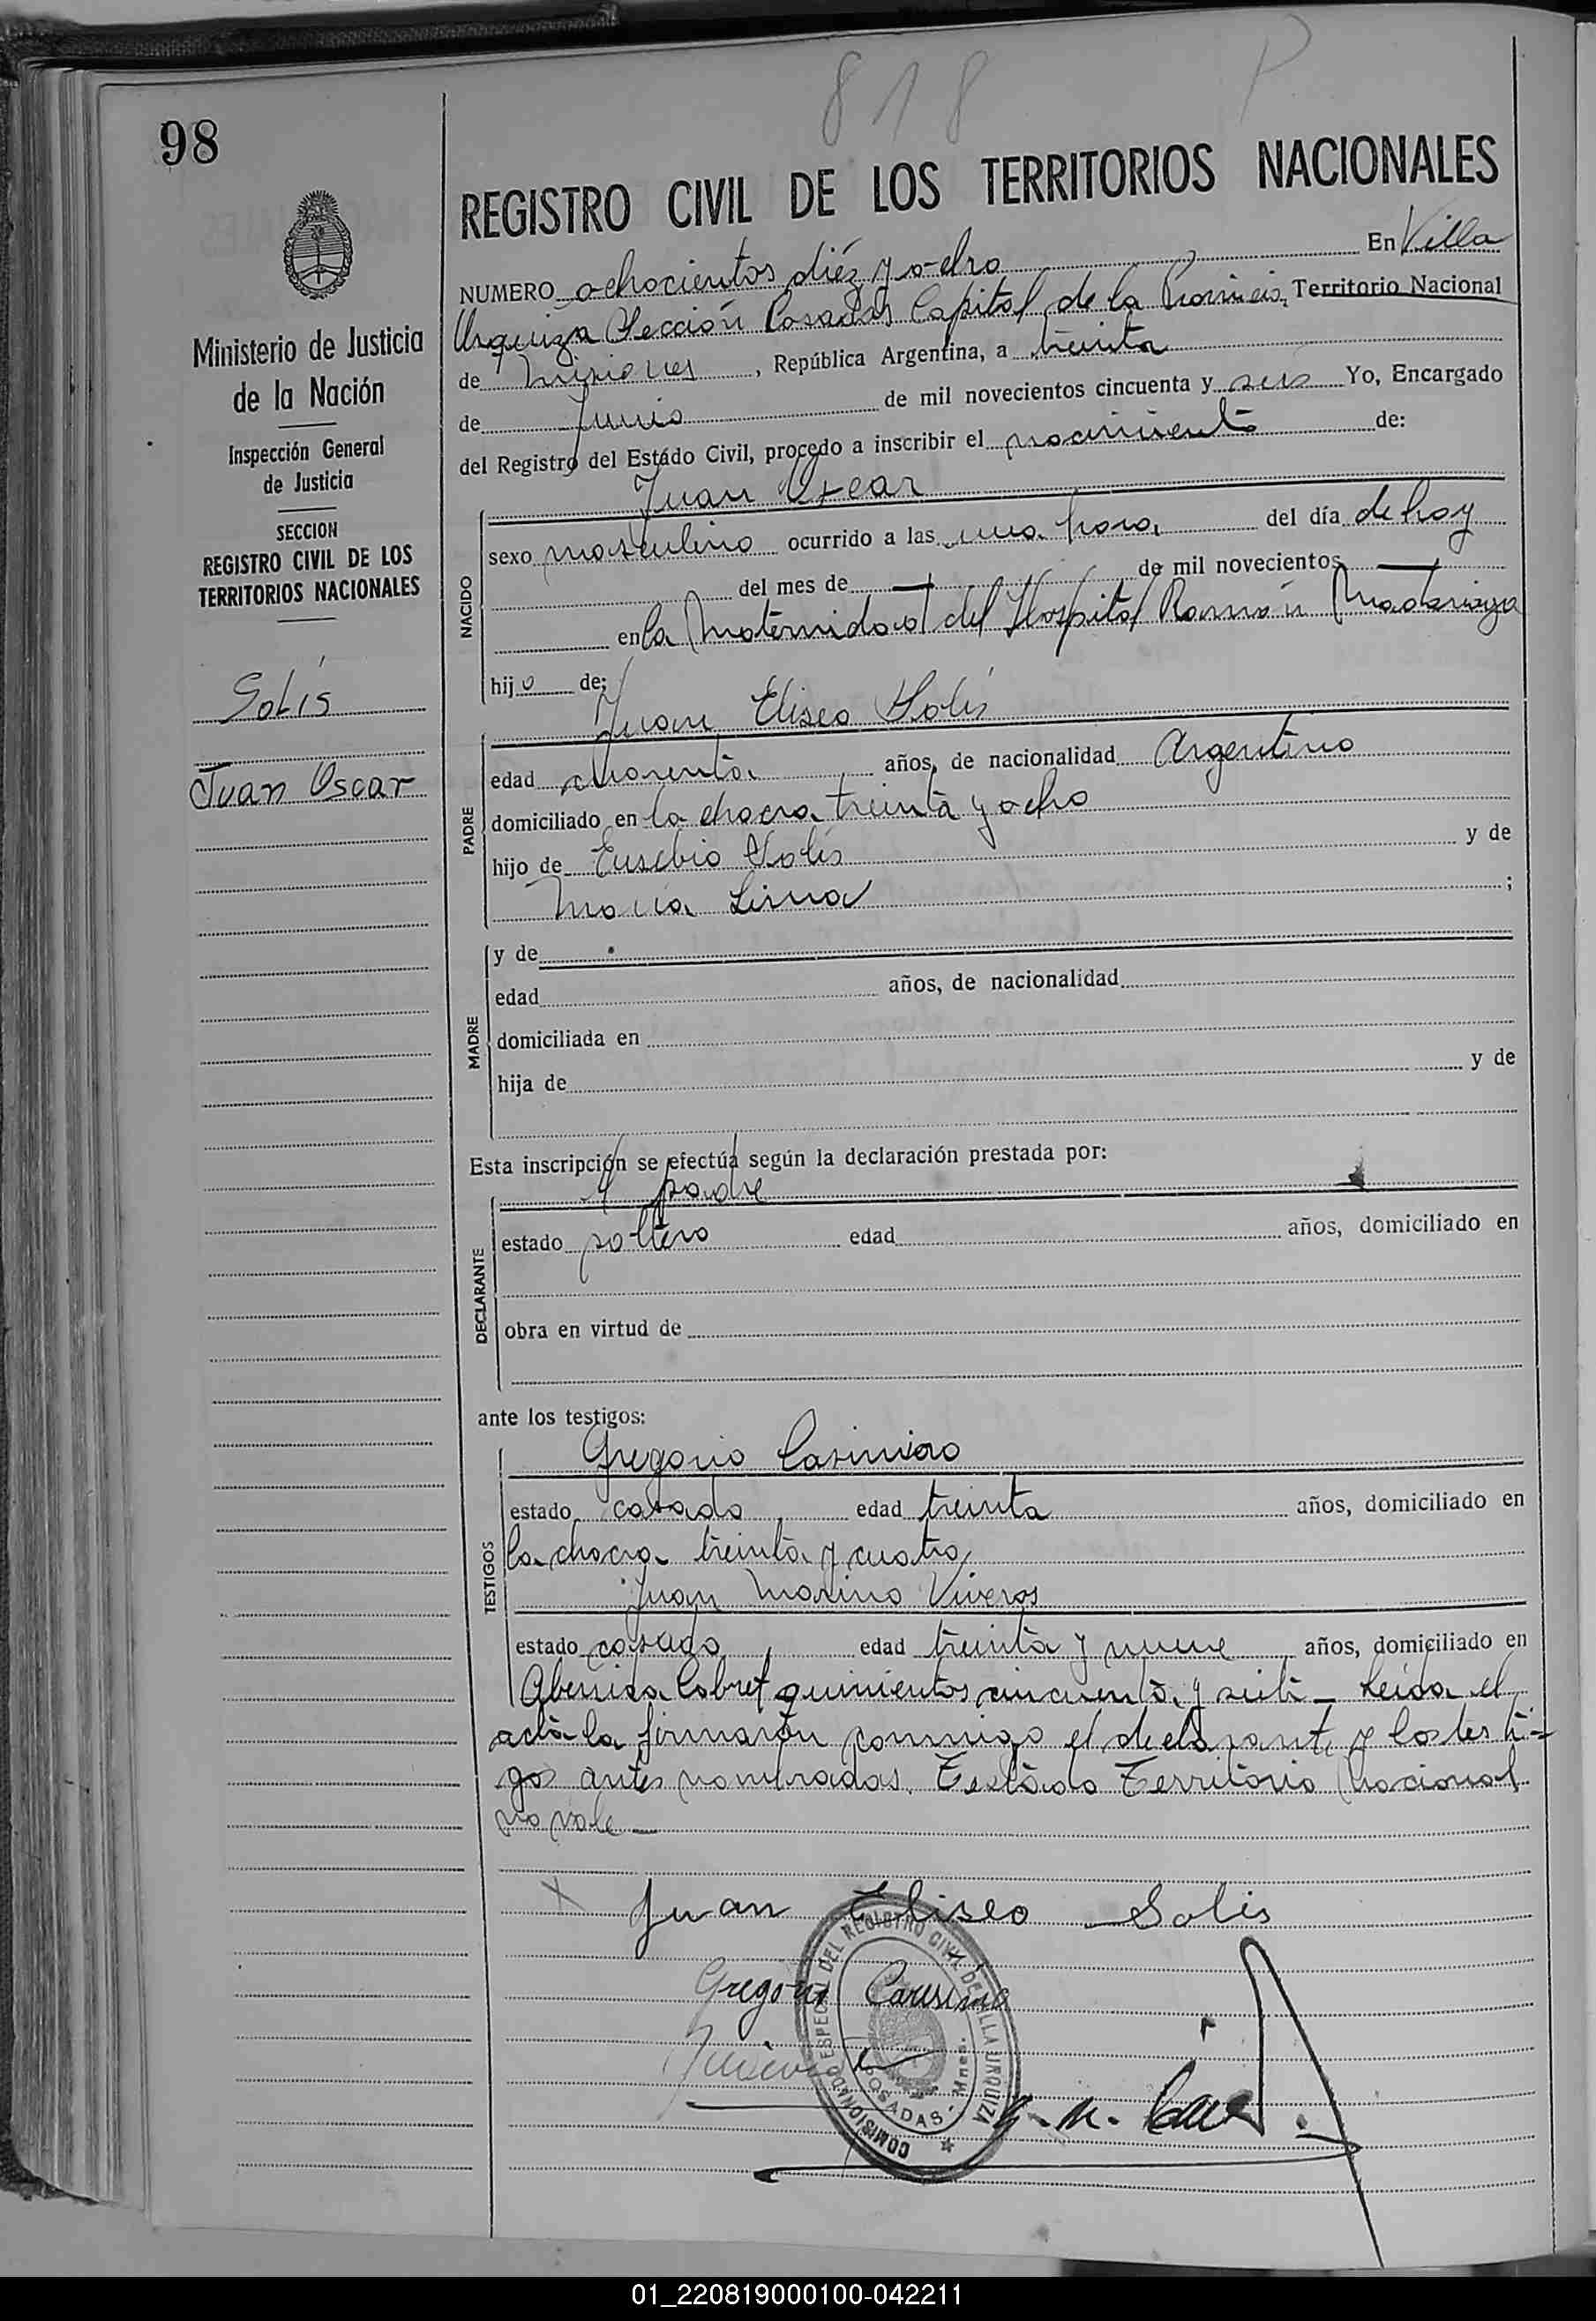 818 P
98
REGISTRO CIVIL DE LOS TERRITORIOS NACIONALES
Ministerio de Justicia
de la Nación
Inspección General
de Justicia
SECCION
REGISTRO CIVIL DE LOS
TERRITORIOS NACIONALES
Solís
Juan Oscar
NUMERO ochocientos diéz y ocho En Villa
Urquiza Sección Posadas Capital de la Provincia, Territorio Nacional
de Misiones, República Argentina, a treinta
de Junio de mil novecientos cincuenta y seis Yo, Encargado
del Registro del Estado Civil, procedo a inscribir el nacimiento de:
Juan Oscar
NACIDO
sexo masculino ocurrido a las una hora del día de hoy
del mes de — de mil novecientos —
en la Maternidad del Hospital Ramón Madariaga
hijo de:
Juan Eliseo Solís
PADRE
edad cuarenta años, de nacionalidad Argentino
domiciliado en la chacra treinta y ocho
hijo de Eusebio Solís y de
María Lima ;
MADRE
y de
edad años, de nacionalidad
domiciliada en
hija de y de
Esta inscripción se efectúa según la declaración prestada por:
el padre
DECLARANTE
estado soltero edad años, domiciliado en
obra en virtud de
ante los testigos:
Gregorio Casimiro
TESTIGOS
estado casado edad treinta años, domiciliado en
la chacra treinta y cuatro
Juan Marino Viveros
estado casado edad treinta y nueve años, domiciliado en
quinientos cincuenta y siete — Leída el
acta la firmaron conmigo el declarante y los testi-
gos antes nombrados. Testado Territorio Nacional
no vale —
Juan Eliseo Solis
Gregorio
COMISIONADO ESPECIAL DEL REGISTRO CIVIL DE VILLA URQUIZA
POSADAS - Mnes.
01_220819000100-042211